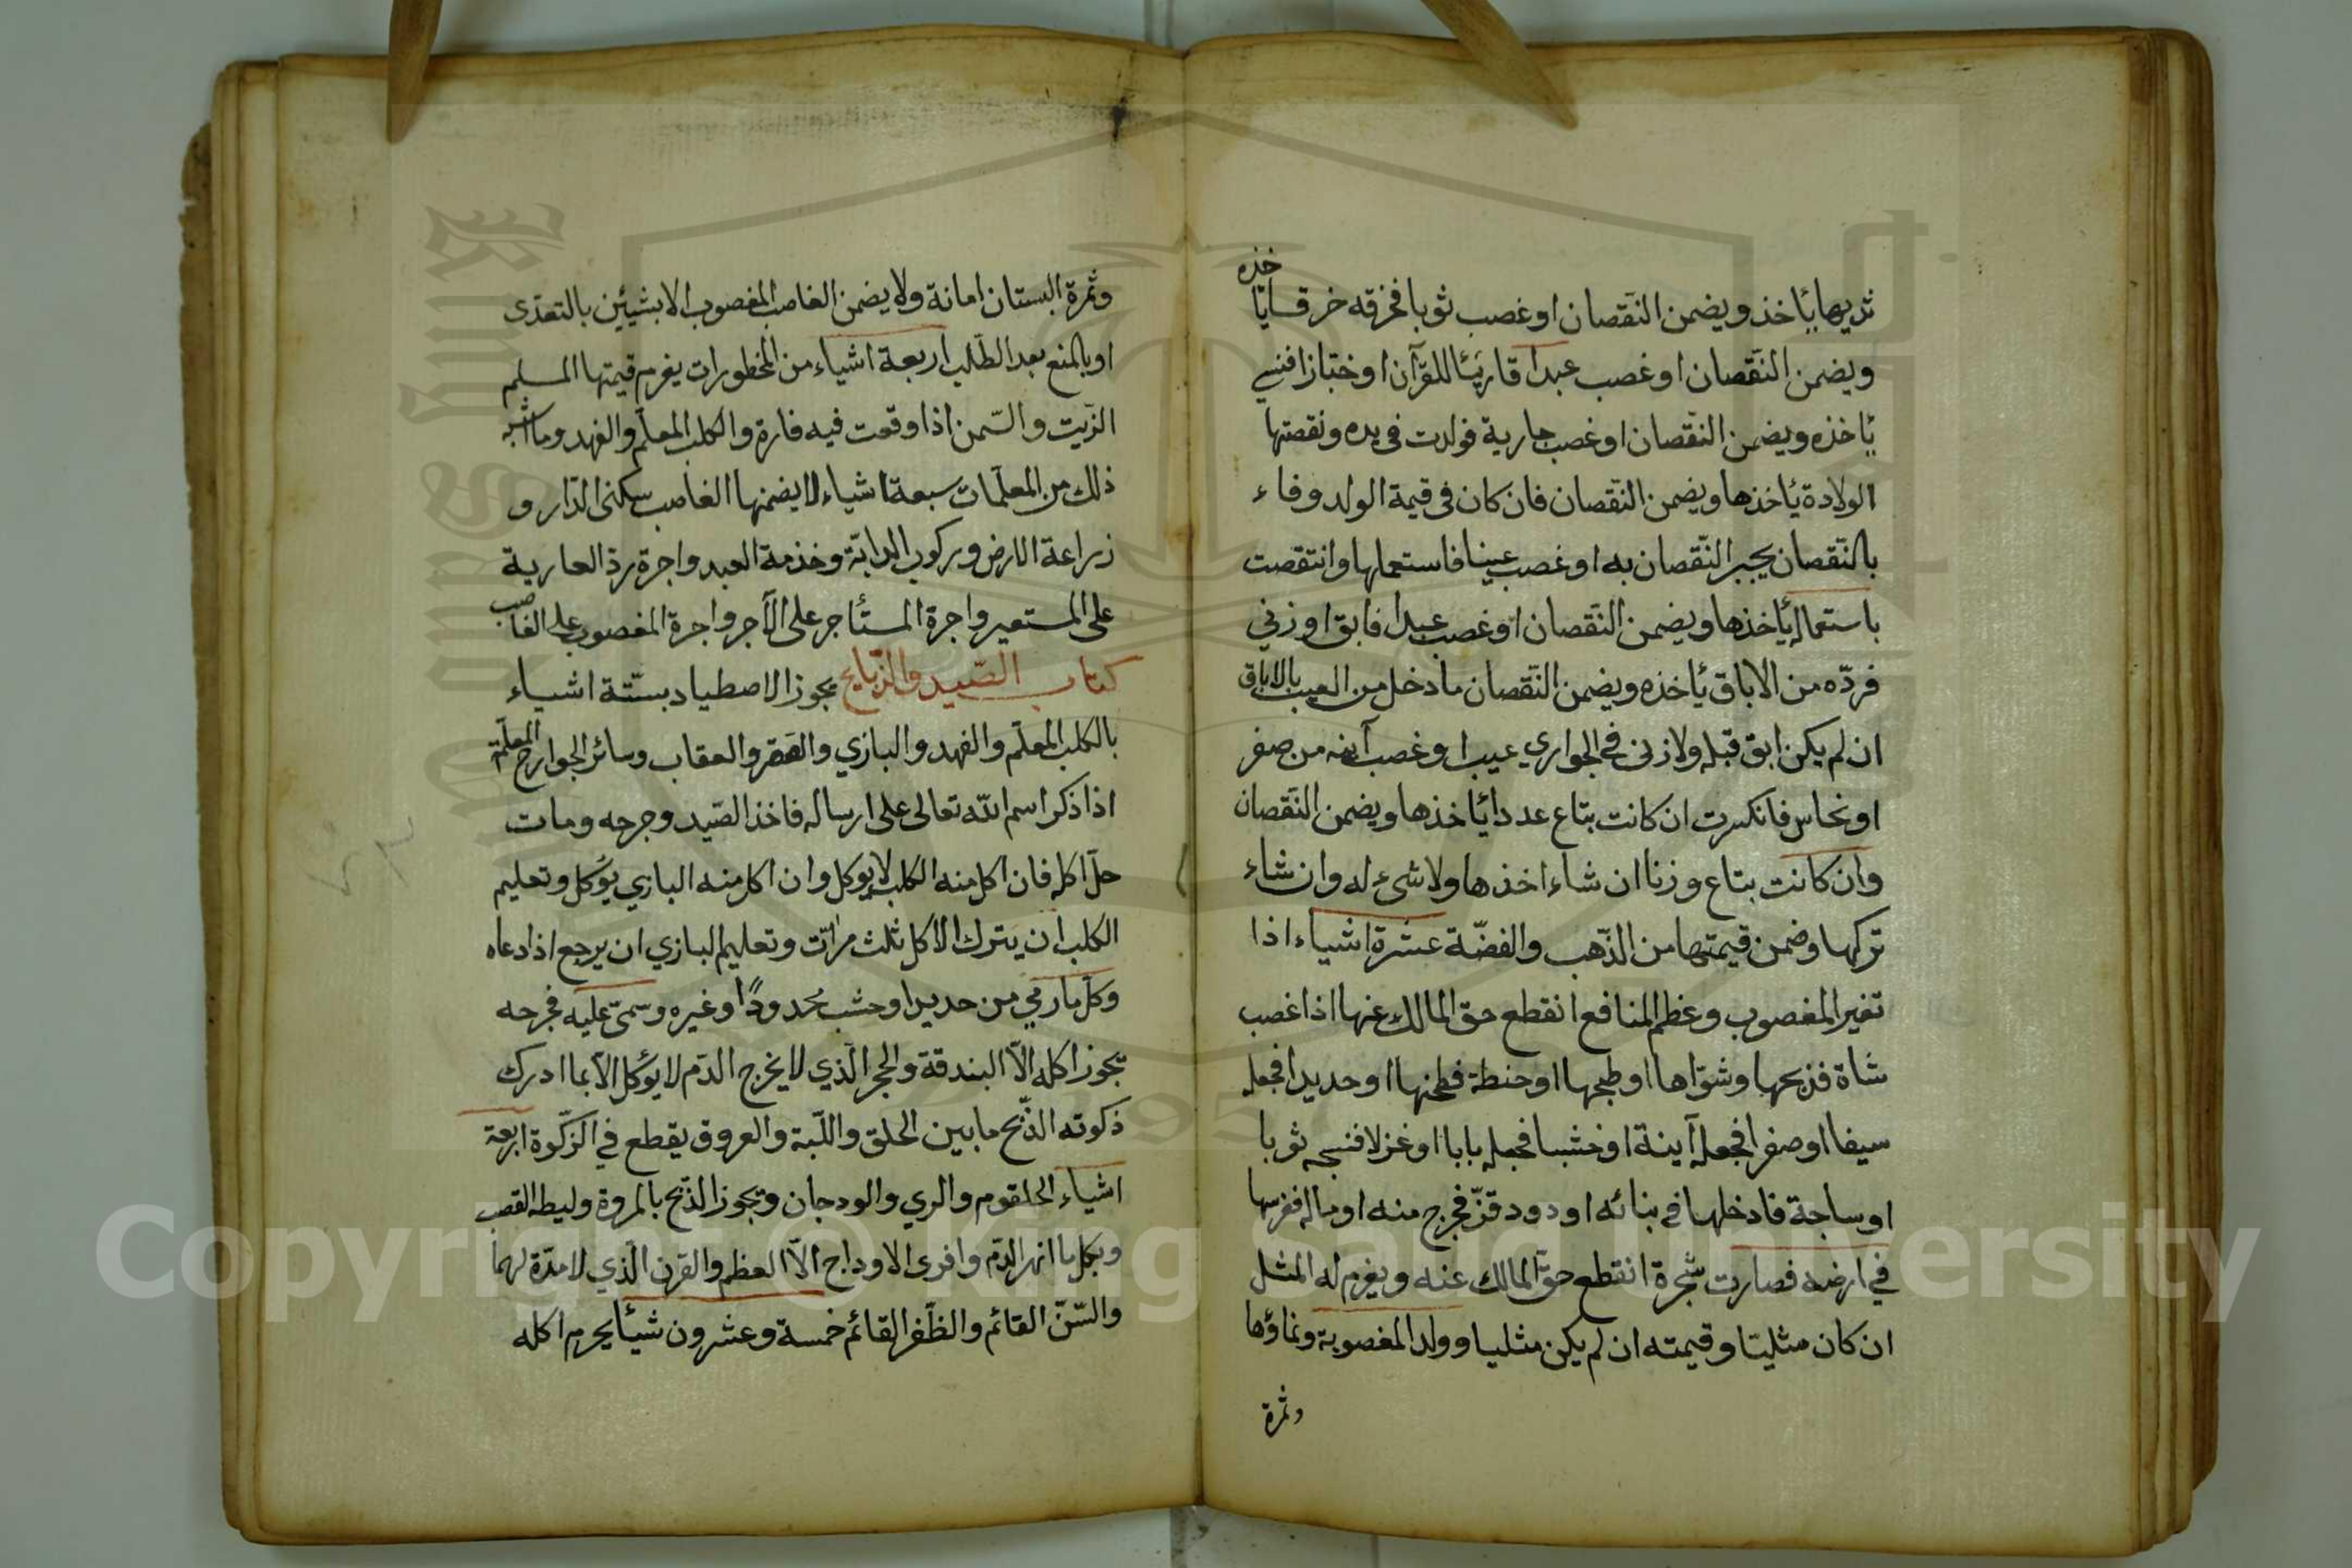 ثديها يأخذ ويضمن النقصان او غصب ثوبا فخرقه خرقا يأخذه
ويضمن النقصان او غصب عبدا قاريئا للقرآن او خبّازا فنسي
يأخذه ويضمن النقصان او غصب جارية فولدت فى يده ونقصتها
الولادة يأخذها ويضمن النقصان فان كان فى قيمة الولد وفاء
بالنقصان يجبر النقصان به او غصب عينا فاستعملها وانتقصت
باستعماله يأخذها ويضمن النقصان او غصب عبدا فابق او زني
فردّه من الاباق يأخذه ويضمن النقصان ما دخل من العيب بالاباق
ان لم يكن ابق قبله ولا زنى فى الجواري عيب او غصب آنيه من صفر
او نحاس فانكسرت ان كانت بتاع عددا يأخذها ويضمن النقصان
وان كانت بتاع وزنا ان شاء اخذها ولا شىء له وان شاء
تركها وضمن قيمتها من الذّهب والفضّة عشرة اشياء اذا
تغير المغصوب وعظم المنافع انقطع حقّ المالك عنها اذا غصب
شاة فذبحها وشوّاها او طبخها او حنطة فطحنها او حديدا فجعله
سيفا او صفرا فجعله آينة او خشبا فجعله بابا او غزلا فنسجه ثوبا
او ساجة فادخلها في بنائه او دود قزّ فخرج منه او ماله فغرسها
في ارضه فصارت شجرة انقطع حقّ المالك عنه ويغرم له المثل
ان كان مثليّا وقيمته ان لم يكن مثليا وولد المغصوبة ونماؤها
وثمرة
وثمرة البستان امانة ولا يضمن الغاصب المغصوب الا بشيئين بالتعدّى
او بالمنع بعد الطّلب اربعة اشياء من المحظورات يغرم قيمتها المسلم
الزّيت والسّمن اذا وقعت فيه فارة والكلب المعلّم والفهد وما اشبه
ذلك من المعلّمات سبعة اشياء لا يضمنها الغاصب سكنى الدّار و
زراعة الارض وركوب الدابّة وخذمة العبد واجرة ردّ العارية
على المستعير واجرة المستأجر على الآجر واجرة المغصوب على الغاصب
كتاب الصّيد والذّبايح يجوز الاصطياد بستّة اشياء
بالكلب المعلّم والفهد والبازي والصقر والعقاب وسائر الجوارح المعلّمة
اذا ذكر اسم اللّه تعالى على ارساله فاخذ الصّيد وجرحه ومات
حلّ اكله فان اكل منه الكلب لا يوكل وان اكل منه البازي يؤكل وتعليم
الكلب ان يترك الاكل ثلث مرّات وتعليم البازي ان يرجع اذا دعاه
وكلّ ما رمي من حديد او خشب محدودًا وغيره وسمّى عليه فجرحه
تجوز اكله الّا البندقة والحجر الّذي لا يخرج الدّم لا يؤكل الّا بما ادرك
ذكوته الذّبح ما بين الحلق واللّبة والعروق يقطع في الزّكوة اربعة
اشياء الحلقوم والمري والودجان وتجوز الذّبح بالمروة وليطه القصب
وبكلّ ما انهر الدّم وافرى الاوداج الّا العظم والقرن الّذي لا مدّة لهما
والسّنّ القائم والظّفر القائم خمسة وعشرون شيئا يحرم اكله
Copyright © King Saud University
King Saud
1957